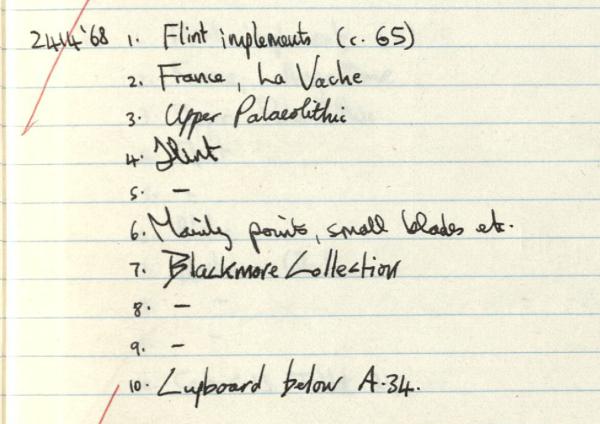 24/4'68 1. Flint implements (c. 65)
2. France, La Vache
3. Upper Palaeolithic
4. Flint
5. –
6. Mainly points, small blades etc.
7. Blackmore Collection
8. –
9. –
10. Cupboard below A.34.